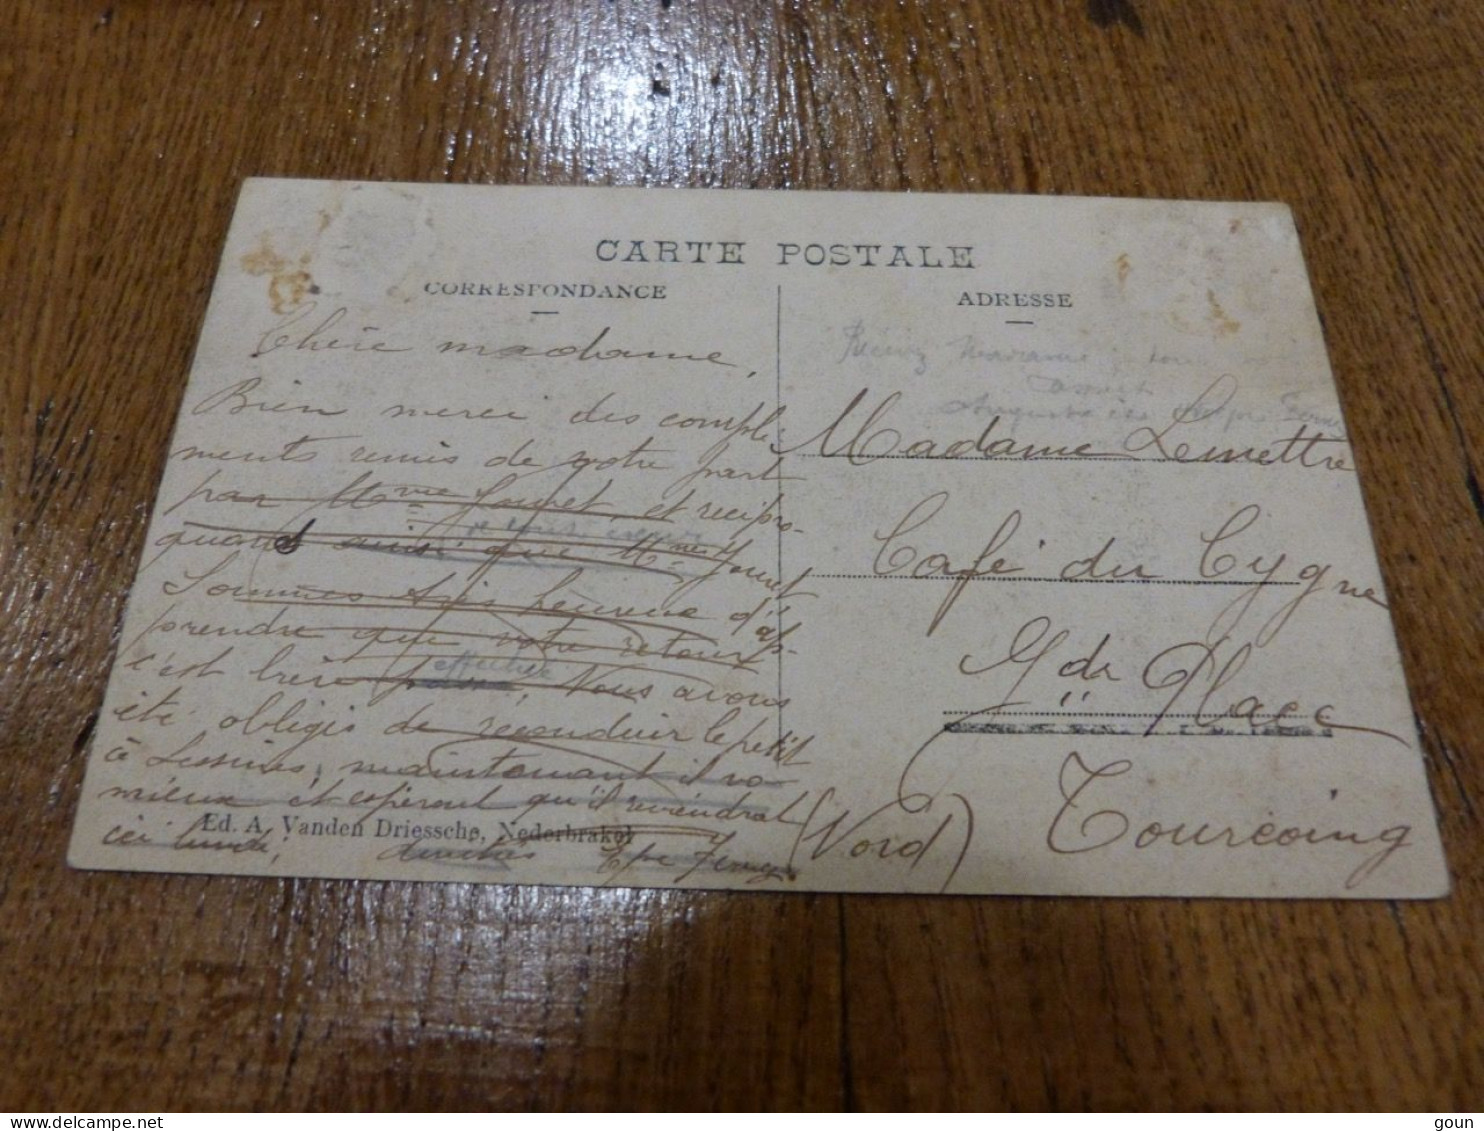 CARTE POSTALE
CORRESPONDANCE
ADRESSE
Chère madame,
Bien merci des compli-
ments remis de votre part
par Mme Jouret, et recipro-
quand ainsi que Mme Jouret
Sommes très heureux d'ap-
prendre que votre retour
effectué
c'est bien passé, Nous avons
été obligés de réconduir le petit
à Lessines, maintenant il va
mieux et espérent qu'il reviendrat
ici lundi,
Ed. A. Vanden Driessche, Nederbrakel
Madame
Madame Lemettre
Café du Cygne
Gde Place
Tourcoing
(Nord)
goun